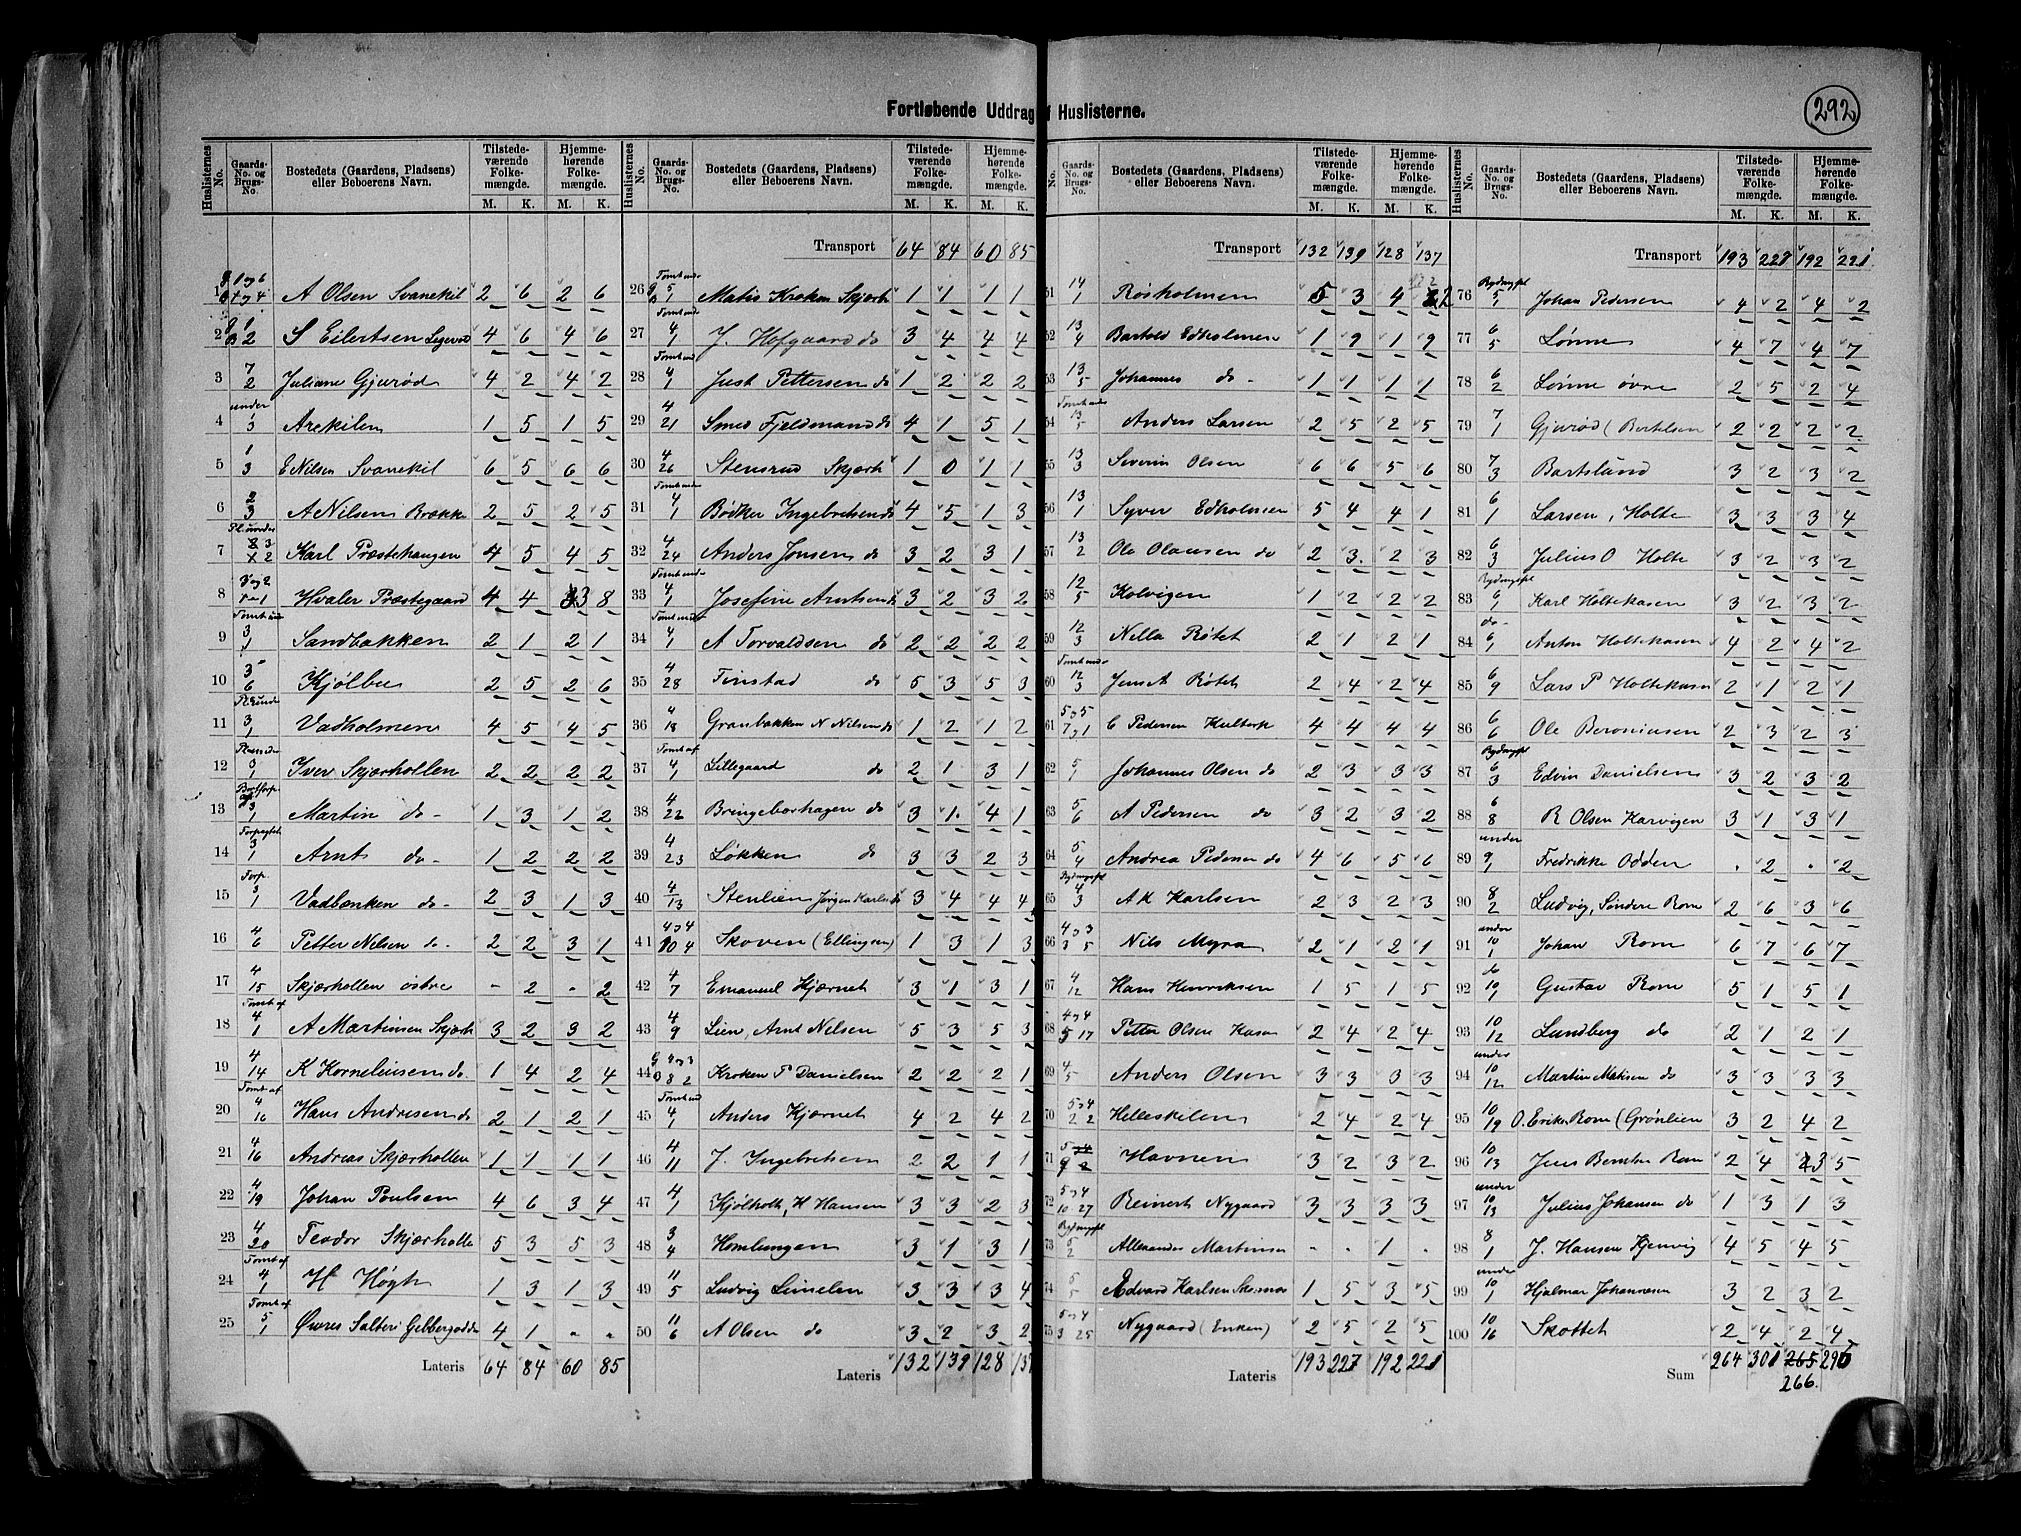 Fortløbende Uddrag af Huslisterne.
292
Huslisternes No. Gaards-No. og Brugs-No. Bostedets (Gaardens, Pladsens) eller Beboerens Navn. Tilstedeværende Folkemængde. M. K. Hjemmehørende Folkemængde. M. K.
1 A Olsen Svanekil 2 6 2 6
2 1/2 S Eilertsen 4 6 4 6
3 7/2 Juliane Gjurød 4 2 4 2
4 under 1/3 Arekilen 1 5 1 5
5 1/3 E Nilsen Svanekil 6 5 6 6
6 2/3 A Nilsen Brække 2 5 2 5
7 Karl Præstehaugen 4 5 4 5
8 Hvaler Præstegaard 4 4 3 8
9 3/1 Sandbakken 2 1 2 1
10 3/6 Kjølbu 2 5 2 6
11 3/1 Vadholmen 4 5 4 5
12 3/1 Iver Skjærhollen 2 2 2 2
13 3/1 Martin do- 1 3 1 2
14 3/1 Arnt do- 1 2 2 2
15 3/1 Vadbænken do- 2 3 1 3
16 4/6 Petter Nilsen do- 2 2 3 1
17 4/15 Skjærhollen østre - 2 - 2
18 Tomt af 4/1 A Martinsen Skjærh 3 2 3 2
19 4/14 K Korneliusen do 1 4 2 4
20 Tomt af 4/16 Hans Andresen do 2 1 2 1
21 4/16 Andreas Skjærhollen 1 1 1 1
22 4/19 Johan Poulsen 4 6 3 4
23 4/20 Teodor Skjærholle 5 3 5 3
24 Tomt af 4/1 H Høgh 1 3 1 3
25 Tomt af 5/1 4 1 " "
Lateris 64 84 60 85
Transport 64 84 60 85
26 5/1 Matis Kroken Skjærh 1 1 1 1
27 4/1 J. Hofgaard do 3 4 4 4
28 4/1 Just Pettersen do 1 2 2 2
29 4/21 Smed Fjeldmand do 4 1 5 1
30 4/26 Stensrud Skjærh 1 0 1 1
31 4/1 Bødker Ingebretsen do 4 5 1 3
32 4/24 Anders Jonsen do 3 2 3 1
33 4/1 Josefine Arntsen do 3 2 3 2
34 4/1 A Torvaldsen do 2 2 2 2
35 4/28 Finstad do 5 3 5 3
36 4/18 Granbakken N Nilsen do 1 2 1 2
37 Tomt af 4/1 Lillegaard do 2 1 3 1
38 4/22 Bringeborhagen do 3 1 4 1
39 4/23 Løkken do 3 3 2 3
40 4/13 Stenlien Jørgen Karlsen do 3 4 4 4
41 Skoven (Ellingsen) 1 3 1 3
42 4/7 Emanuel Kjærnet 3 1 3 1
43 4/9 Lien, Arnt Nilsen 5 3 5 3
44 Kroken P Danielsen 2 2 2 1
45 4/1 Anders Kjærnet 4 2 4 2
46 4/11 J. Ingebretsen 2 2 1 1
47 4/1 Kjølholt, H Hansen 3 3 2 3
48 3/4 Homlungen 3 1 3 1
49 11/5 Ludvig Limelen 3 3 3 4
50 11/6 A Olsen do 3 2 3 2
Lateris 132 139 128 137
Transport 132 139 128 137
51 14/1 Røsholmen 5 3 4 2
52 13/4 Bartold Edholmen 1 9 1 9
53 13/5 Johannes do- 1 1 1 1
54 13/5 Anders Larsen 2 5 2 5
55 13/3 Severin Olsen 6 6 5 6
56 13/1 Syver Edholmen 5 4 4 1
57 13/2 Ole Olausen do 2 3 2 3
58 12/5 Kolvigen 1 2 2 2
59 12/3 Nella Røtet 2 1 2 1
60 12/3 Jens A Røtet 2 4 2 4
61 C Pedersen 4 4 4 4
62 5/1 Johannes Olsen do 2 3 3 3
63 5/6 A Pedersen do 3 2 3 2
64 5/4 Andrea Pedersen do 4 6 5 6
65 4/3 A K Karlsen 2 3 2 3
66 Nils Myra 2 1 2 1
67 4/12 Hans Henriksen 1 5 1 5
68 Petter Olsen Kasa 2 4 2 4
69 4/5 Anders Olsen 3 3 3 3
70 Helleskilen 2 4 2 4
71 Havnen 3 2 3 2
72 Reinert Nygaard 3 3 3 3
73 5/2 Allexander Martinsen " " 1 "
74 Edvard Karlsen 1 5 3 5
75 Nygaard (Enken) 2 5 2 5
Lateris 193 227 192 221
Transport 193 227 192 221
76 5/1 Johan Pedersen 4 2 4 2
77 6/5 Lønne 4 7 4 7
78 6/2 Lønne øvre 2 5 2 4
79 7/1 Gjurød (Bertelsen 2 2 2 2
80 7/3 Bartslund 3 2 3 2
81 6/1 Larsen, Holte 3 3 3 4
82 6/3 Julius O Holte 3 2 3 2
83 6/1 Karl Holtekasen 3 2 3 2
84 do- 6/1 Anton Holtekasen 4 2 4 2
85 6/9 Lars P Holtekasen 2 1 2 1
86 6/6 Ole Beroniusen 2 3 2 3
87 6/3 Edvin Danielsen 3 2 3 2
88 6/8 R Olsen Karvigen 3 1 3 1
89 under 9/1 Fredrikke Odden " 2 " 2
90 8/2 Ludvig, Søndere Rom 2 6 3 6
91 under 10/1 Johan Rom 6 7 6 7
92 do 10/1 Gustav Rom 5 1 5 1
93 10/12 Lundberg do 2 1 2 1
94 under 10/12 Martin Matisen do 3 3 3 3
95 10/19 O. Eriksen Rom (Grønlien 3 2 4 2
96 10/13 Jens Berntsen Rom 2 4 3 5
97 under 10/13 Julius Johansen do 1 3 1 3
98 8/1 J. Hansen Kjenvig 4 5 4 5
99 under 10/1 Hjalmar Johannesen 3 2 3 2
100 10/16 Skottet 2 4 2 4
Sum 264 301 265 295
266.